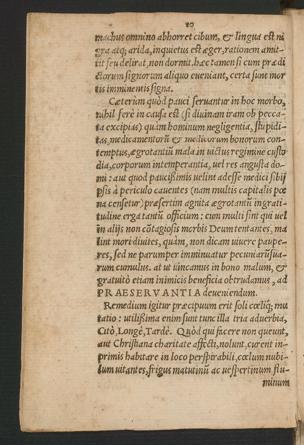 10
machus omnino abhorret cibum, & lingua est ni
gra atq; arida, inquietus est æger, rationem amit-
tit seu delirat, non dormit. hæc tamen si cum prædi
ctorum signorum aliquo eveniant, certa sunt mor
tis imminentis signa.
Cæterùm quòd pauci servantur in hoc morbo,
nihil ferè in causa est (si divinam iram ob pecca-
ta excipias) quàm hominum negligentia, stupidi-
tas, medicamentorũ & medicorum bonorum con-
temptus, ægrotantiũ mala in victus regimine custo
dia, corporum intemperantia, vel res angusta do-
mi: aut quod paucissimis velint adesse medici sibij
psis à periculo caventes (nam multis capitalis pœ
na censetur) præsertim agnita ægrotanũ ingrati-
tudine erga tantũ officium: cùm multi sint qui vel
in alijs non cõtagiosis morbis Deum tentantes, ma
lint mori divites, quàm, non dicam vivere paupe-
res, sed ne parumper imminuatur pecuniarũ sua-
rum cumulus. at ut vincamus in bono malum, &
gratuitò etiam inimicis beneficia obtrudamus, ad
PRAESERVANTIA deveniendum.
Remedium igitur præcipuum erit soli cœliq; mu
tatio: utilissima enim sunt tunc illa tria adverbia,
Citò, Longè, Tardè. Quòd qui facere non queunt,
aut Christiana charitate affecti, nolunt, curent in-
primis habitare in loco perspirabili, cœlum nubi-
lum vitantes, frigus matutinũ ac vespertinum flu-
minum